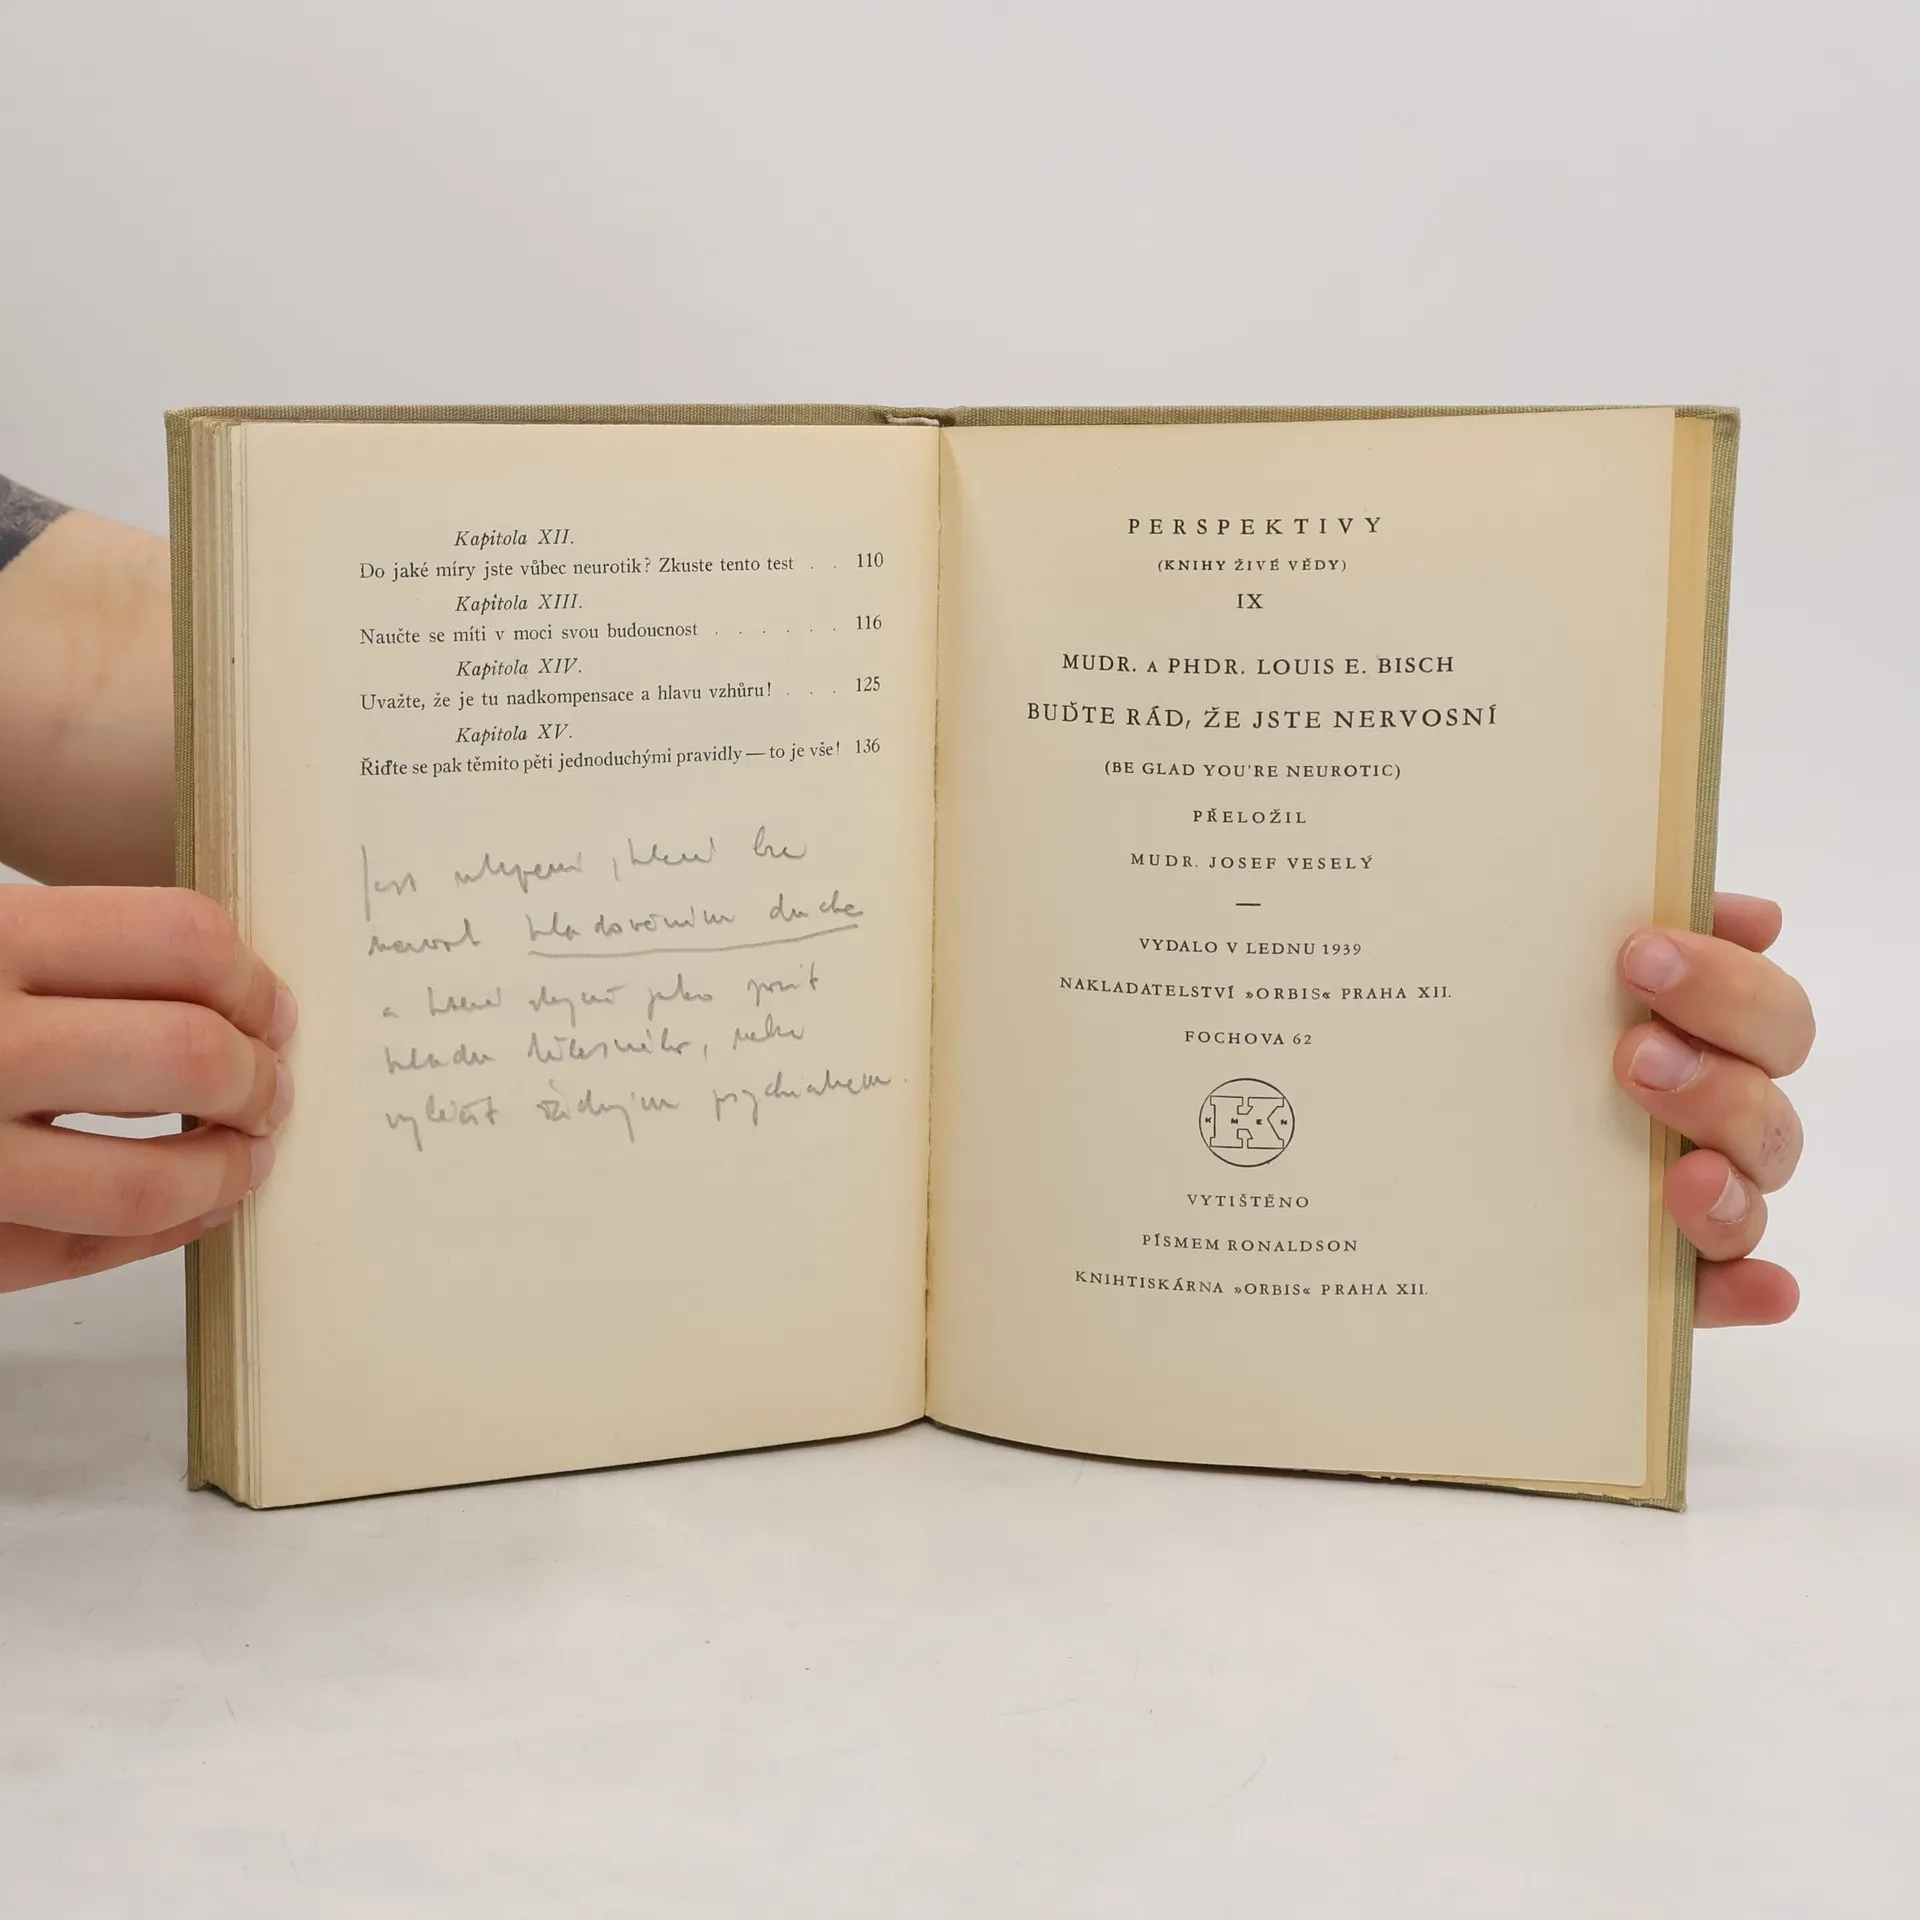 Kapitola XII.
Do jaké míry jste vůbec neurotik? Zkuste tento test . . 110
Kapitola XIII.
Naučte se míti v moci svou budoucnost . . . . . . 116
Kapitola XIV.
Uvažte, že je tu nadkompensace a hlavu vzhůru! . . . 125
Kapitola XV.
Řiďte se pak těmito pěti jednoduchými pravidly — to je vše! 136
lze
nazvat hladověním ducha
a které jako pocit
hladu tělesného, nelze
vyléčit žádným psychiatrem.
PERSPEKTIVY
(KNIHY ŽIVÉ VĚDY)
IX
MUDR. A PHDR. LOUIS E. BISCH
BUĎTE RÁD, ŽE JSTE NERVOSNÍ
(BE GLAD YOU'RE NEUROTIC)
PŘELOŽIL
MUDR. JOSEF VESELÝ
—
VYDALO V LEDNU 1939
NAKLADATELSTVÍ »ORBIS« PRAHA XII.
FOCHOVA 62
K M E N
VYTIŠTĚNO
PÍSMEM RONALDSON
KNIHTISKÁRNA »ORBIS« PRAHA XII.